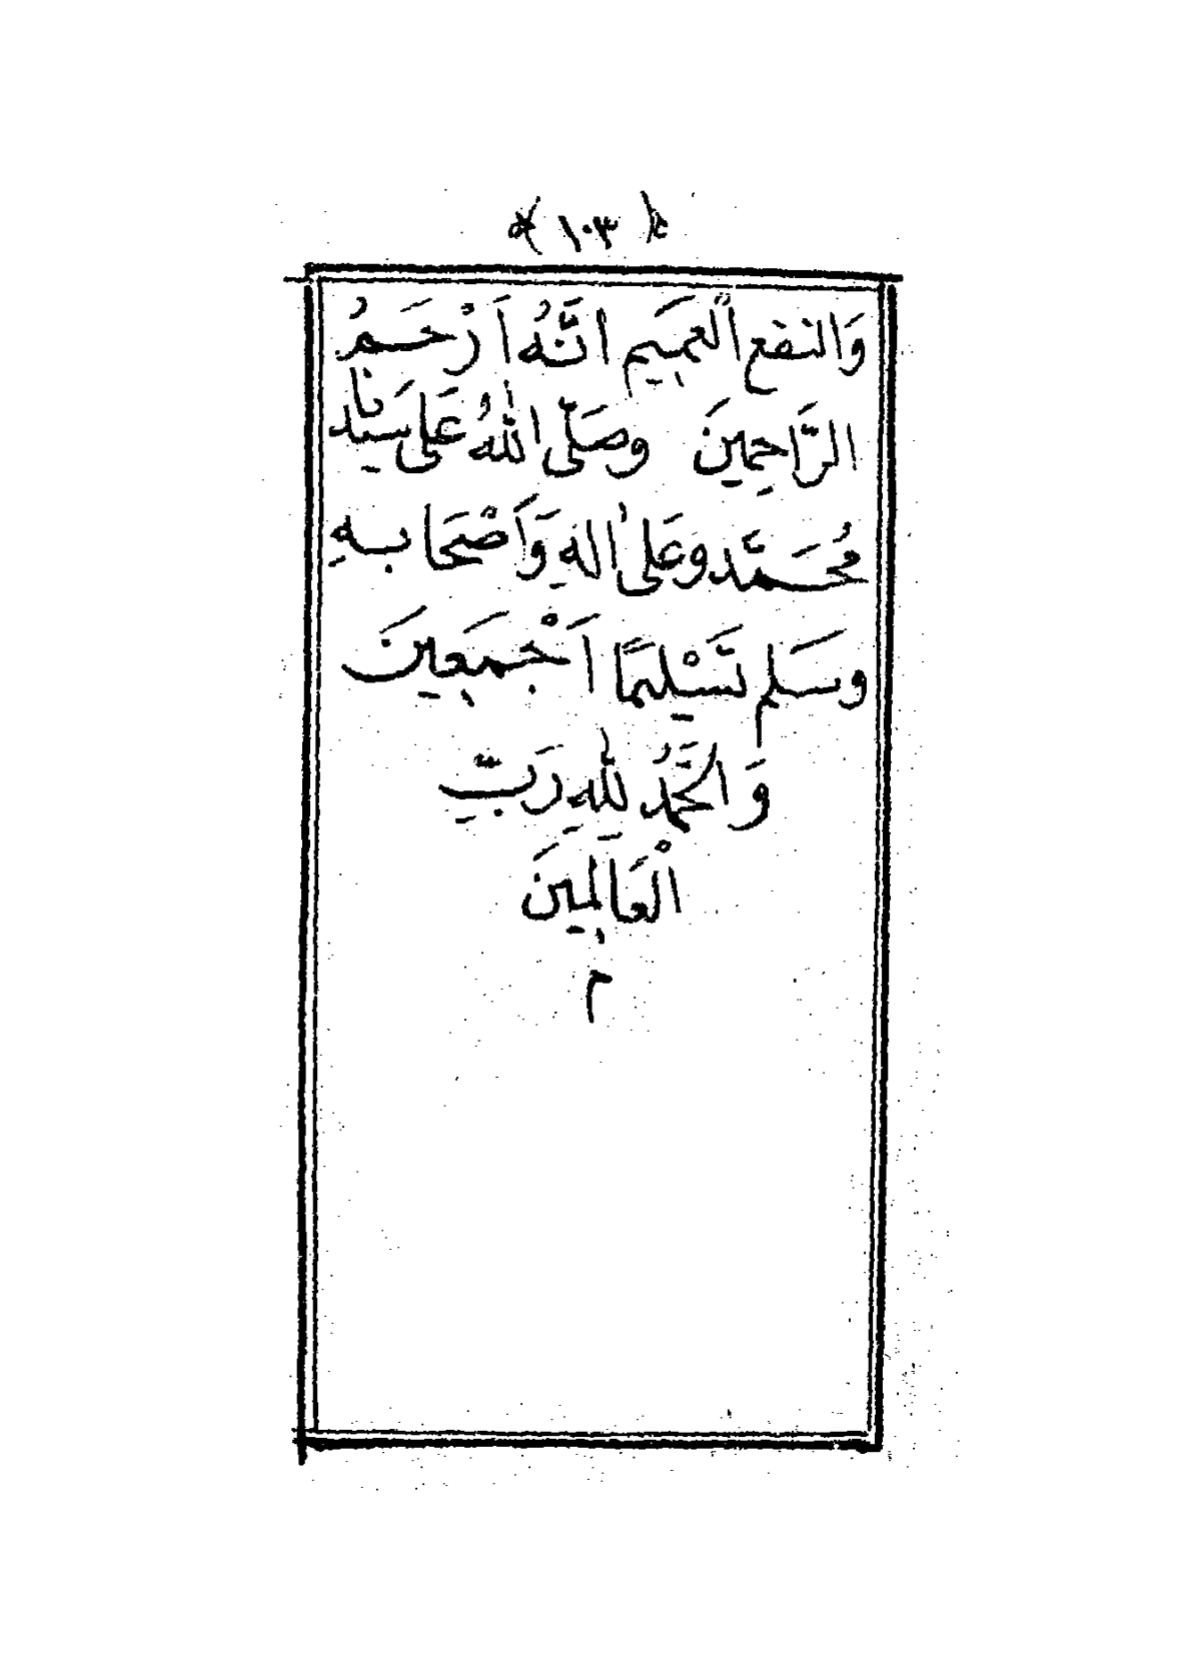 ﴿ ١٠٣ ﴾
وَالنفع العَمِيمِ انَّهُ اَرْحَمُ
الرَّاحِمِينَ وصَلّى اللهُ عَلى سَيِّدِنا
مُحَمَّد وَعَلى الهِ وَاَصْحَابهِ
وسَلم تَسْلِيمًا اَجْمَعِينَ
وَالحَمْدُ للهِ رَبِّ
الْعَالمِينَ
م